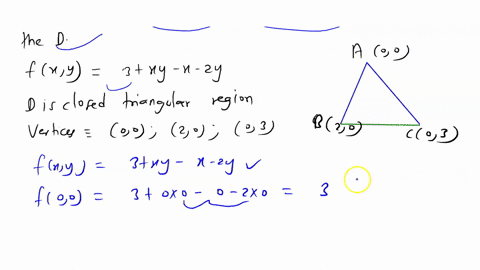 the D.
f(x,y) = 3+xy-x-2y
D is closed triangular region
Vertices = (0,0); (2,0); (0,3)
f(x,y) = 3+xy-x-2y ✓
f(0,0) = 3+0×0-0-2×0 = 3
A (0,0)
B(2,0) C(0,3)